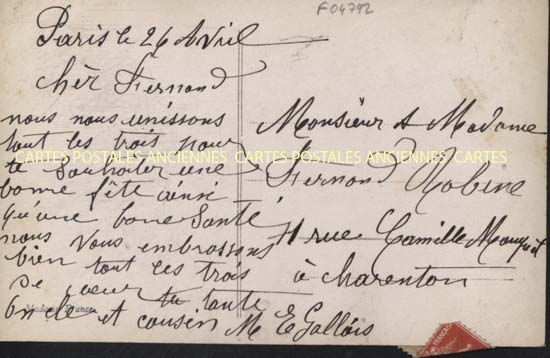 F04792
Paris le 26 Avril
chèr Fernand
nous nous unissons
tout les trois pour
te souhaiter une
bonne fête ainsi
qu'une bone Santé
nous vous embrassons
bien tout les trois
de cœur ta tante
oncle et cousin M E Gallois
Monsieur & Madame
Fernand Robine
11 rue Camille Mouquet
à charenton
CARTES POSTALES ANCIENNES CARTES POSTALES ANCIENNES CARTES